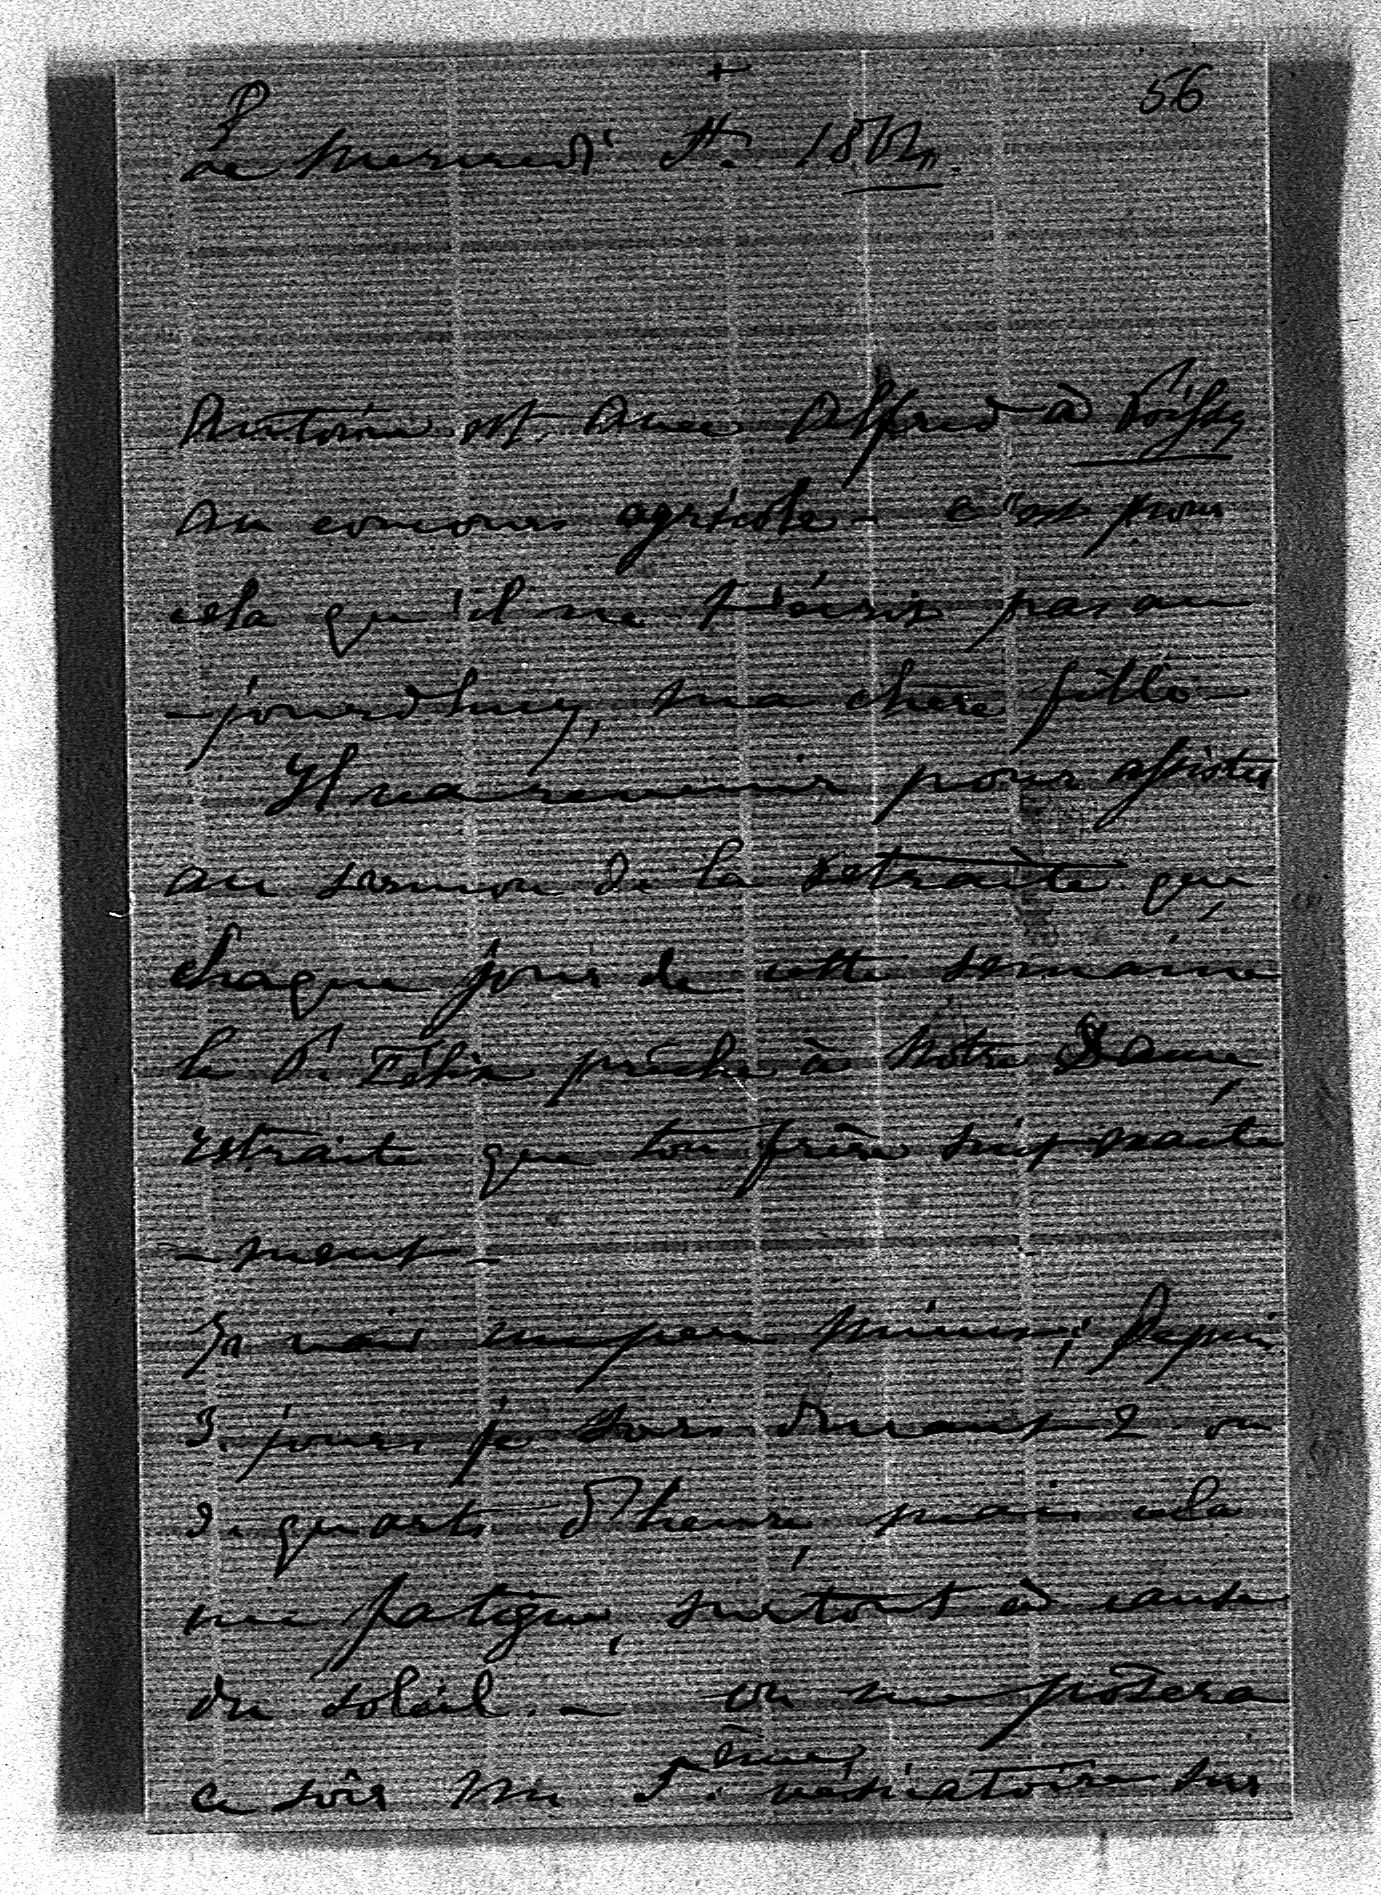 +
56
Le Mercredi St. 1864.
Antoine est avec Alfred à Poissy
au concours agricole – c'est pour
cela qu'il ne t'écris pas au
-jourd'huy, ma chère fille –
Il va revenir pour assister
au sermon de la retraite que
chaque jour de cette semaine
le P. Félix prêche à Notre Dame,
retraite que ton frère suit exacte
-ment –
Je vais un peu mieux; depuis
3. jours je sors durant 2 ou
3. quarts d'heure, mais cela
me fatigue, surtout à cause
du soleil. – on me posera
ce soir un 5.ème vésicatoire sur